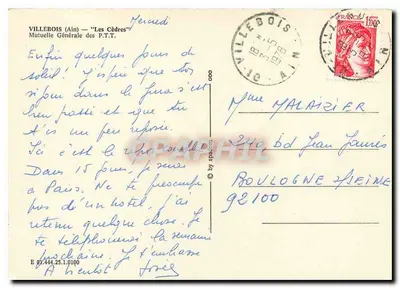 VILLEBOIS (Ain) — "Les Cèdres"
Mutuelle Générale des P.T.T.
Enfin quelques jours de
soleil! J'espère que ton
séjour dans le Jura s'est
bien passé et que tu
t'es un peu reposée.
Ici c'est le repos
Dans 15 jours, je serai
à Paris. Ne te préoccupe
pas d'un hôtel, j'ai
retenu quelque chose. Je
te téléphonerai la semaine
prochaine. Je t'embrasse
A bientôt
VILLEBOIS
AIN
Mme MALAIZIER
240, bd Jean Jaurès
BOULOGNE S/SEINE
92100